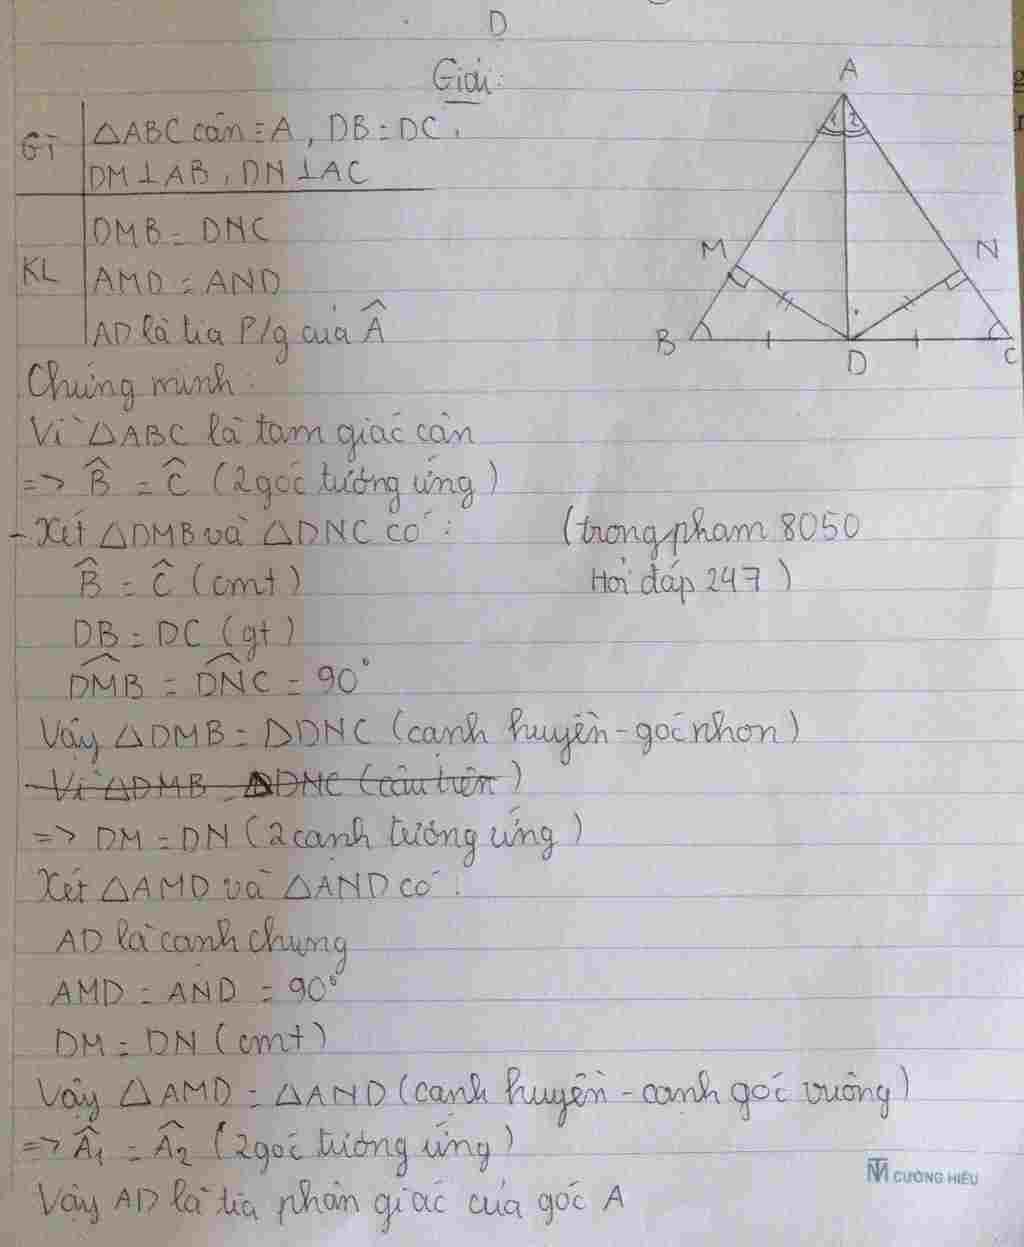 D
Giải:
GT
△ABC cân ≡ A, DB = DC,
DM ⊥ AB, DN ⊥ AC
KL
DMB = DNC
AMD = AND
AD là tia P/g của Â
A
1 2
M
N
B
D
C
Chứng minh:
Vì △ABC là tam giác cân
=> B̂ = Ĉ (2 góc tương ứng)
- Xét △DMB và △DNC có:
(trongpham 8050
Hỏi đáp 247)
B̂ = Ĉ (cmt)
DB = DC (gt)
DMB̂ = DNĈ = 90°
Vậy △DMB = △DNC (cạnh huyền - góc nhọn)
Vì △DMB = △DNC (câu trên)
=> DM = DN (2 cạnh tương ứng)
Xét △AMD và △AND có:
AD là cạnh chung
AMD = AND = 90°
DM = DN (cmt)
Vậy △AMD = △AND (cạnh huyền - cạnh góc vuông)
=> Â₁ = Â₂ (2 góc tương ứng)
Vậy AD là tia phân giác của góc A
TM CƯỜNG HIẾU